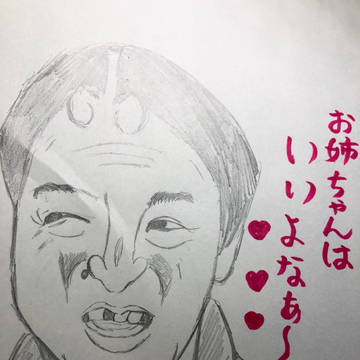 お姉ちゃんは
いいよなぁ〜